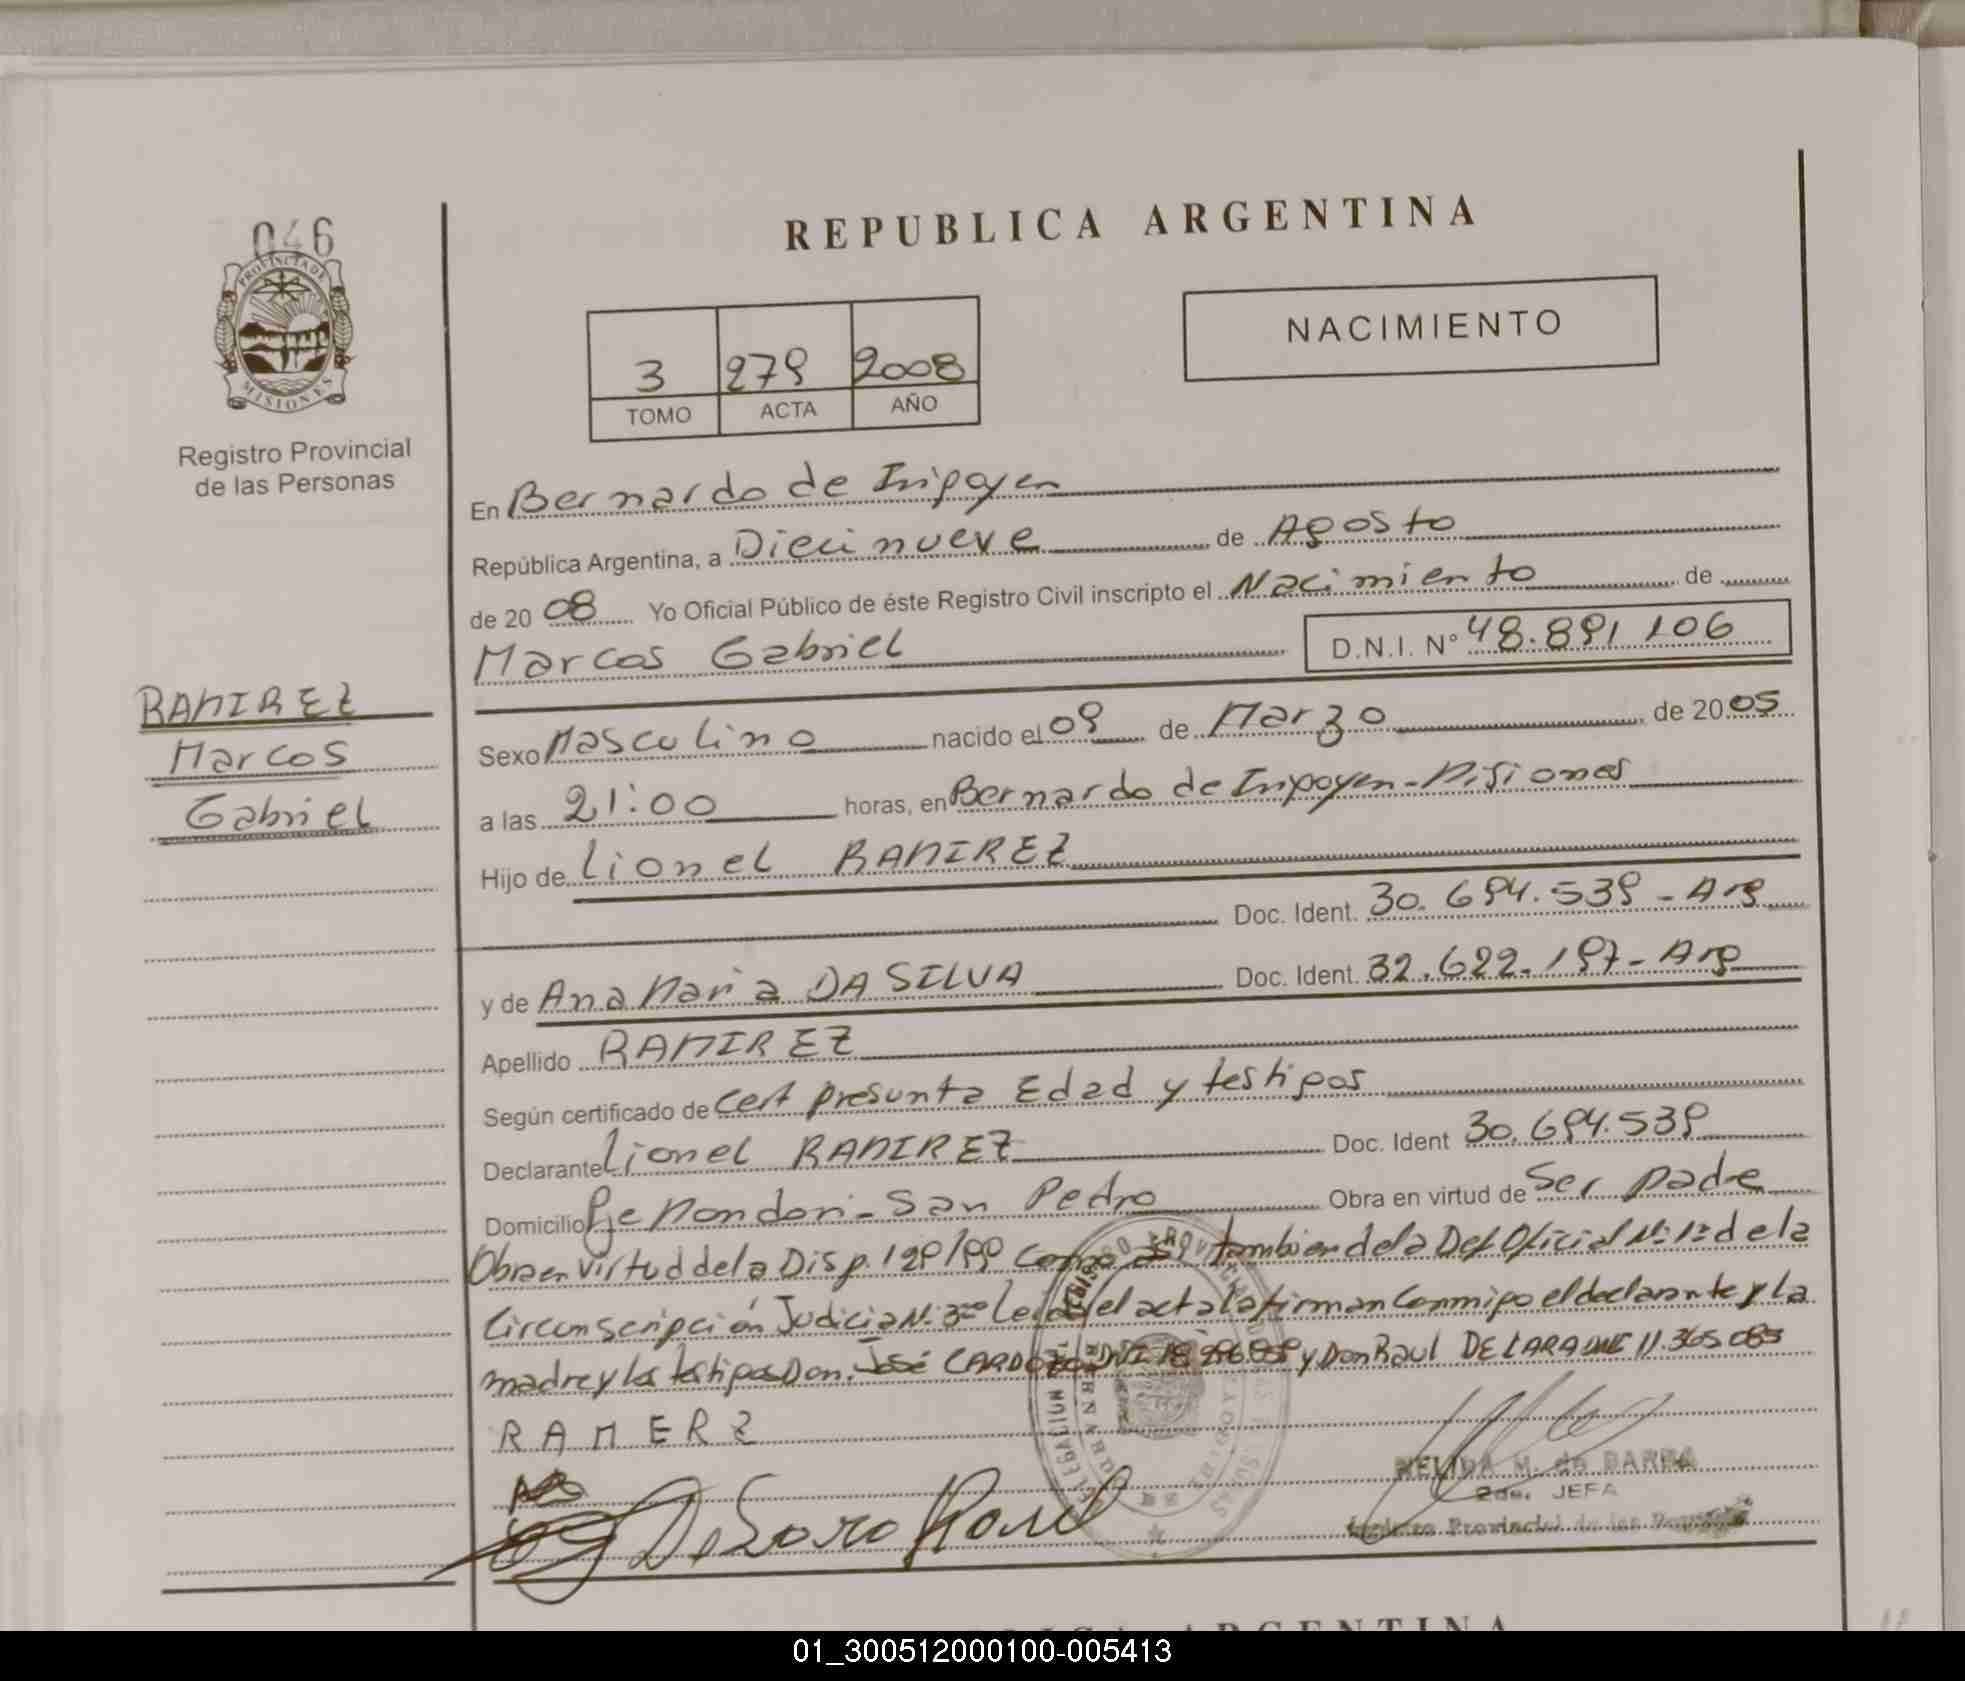 046
PROVINCIA DE
MISIONES
Registro Provincial
de las Personas
RAMIREZ
Marcos
Gabriel
REPUBLICA ARGENTINA
NACIMIENTO
3 279 2008
TOMO ACTA AÑO
En Bernardo de Irigoyen
República Argentina, a Diecinueve de Agosto
de 20 08 Yo Oficial Público de éste Registro Civil inscripto el Nacimiento de
Marcos Gabriel D.N.I. Nº 48.891.106
Sexo Masculino nacido el 09 de Marzo de 20 05
a las 21:00 horas, en Bernardo de Irigoyen - Misiones
Hijo de Lionel RAMIREZ
Doc. Ident. 30.694.539 - Arg
y de Ana Maria DA SILVA Doc. Ident. 32.622.197 - Arg
Apellido RAMIREZ
Según certificado de Cert presunta Edad y testigos
Declarante Lionel RAMIREZ Doc. Ident 30.694.539
Domicilio Pje Mondori - San Pedro Obra en virtud de Ser padre
Obra en virtud de la Disp. 129/99 Como tambien de la Def Oficial Nº 1º de la
Circunscripción Judicial Nº 3º Leida el acta la firman Conmigo el declarante y La
madre y los testigos Don. José CARDOZO DNI y Don Raul DE LARA DNI 11.365.083
RAMERZ
NELIDA M. de BARRA
2da. JEFA
Registro Provincial de las Personas
REPUBLICA ARGENTINA
01_300512000100-005413